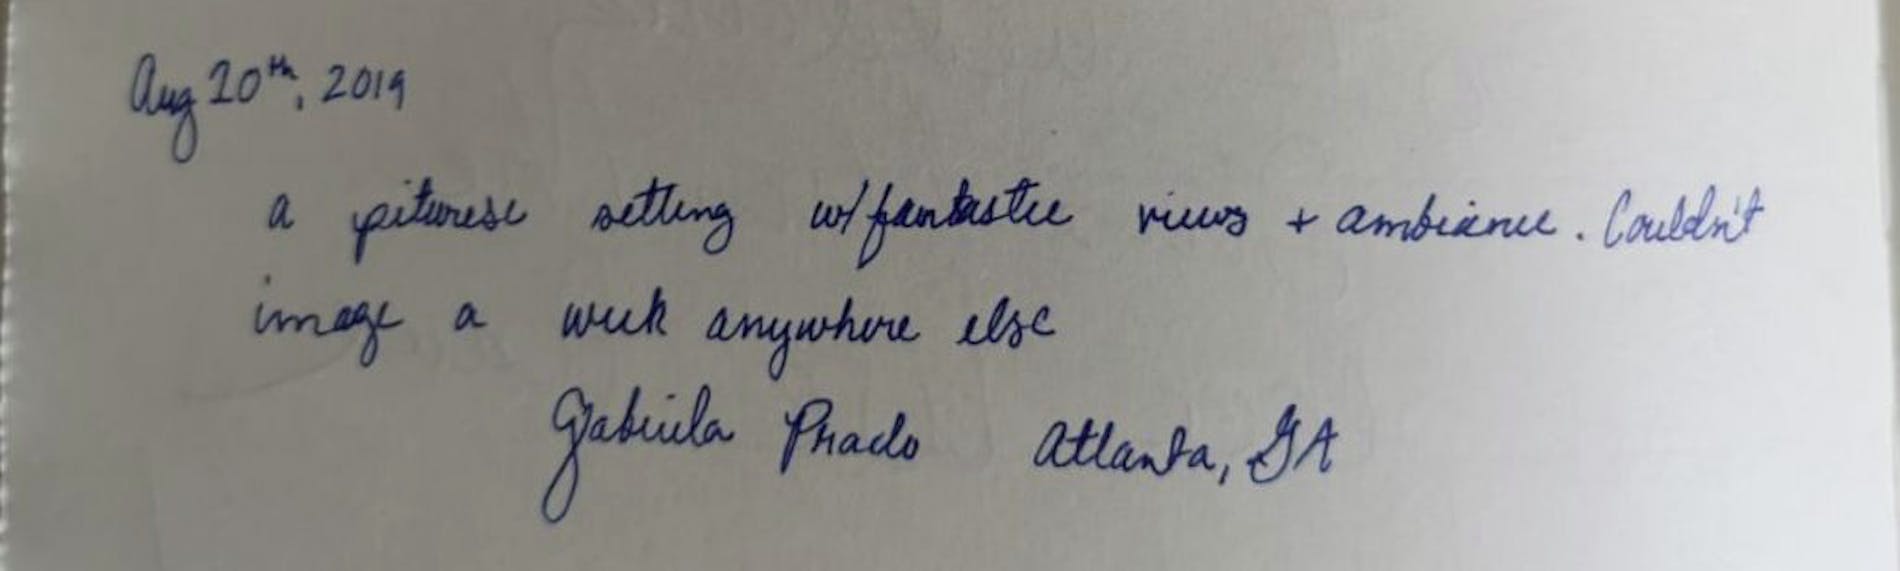 Aug 20th, 2019
a pituresc setting w/ fantastic views + ambiance. Couldn't
image a week anywhere else
Gabriela Prado Atlanta, GA